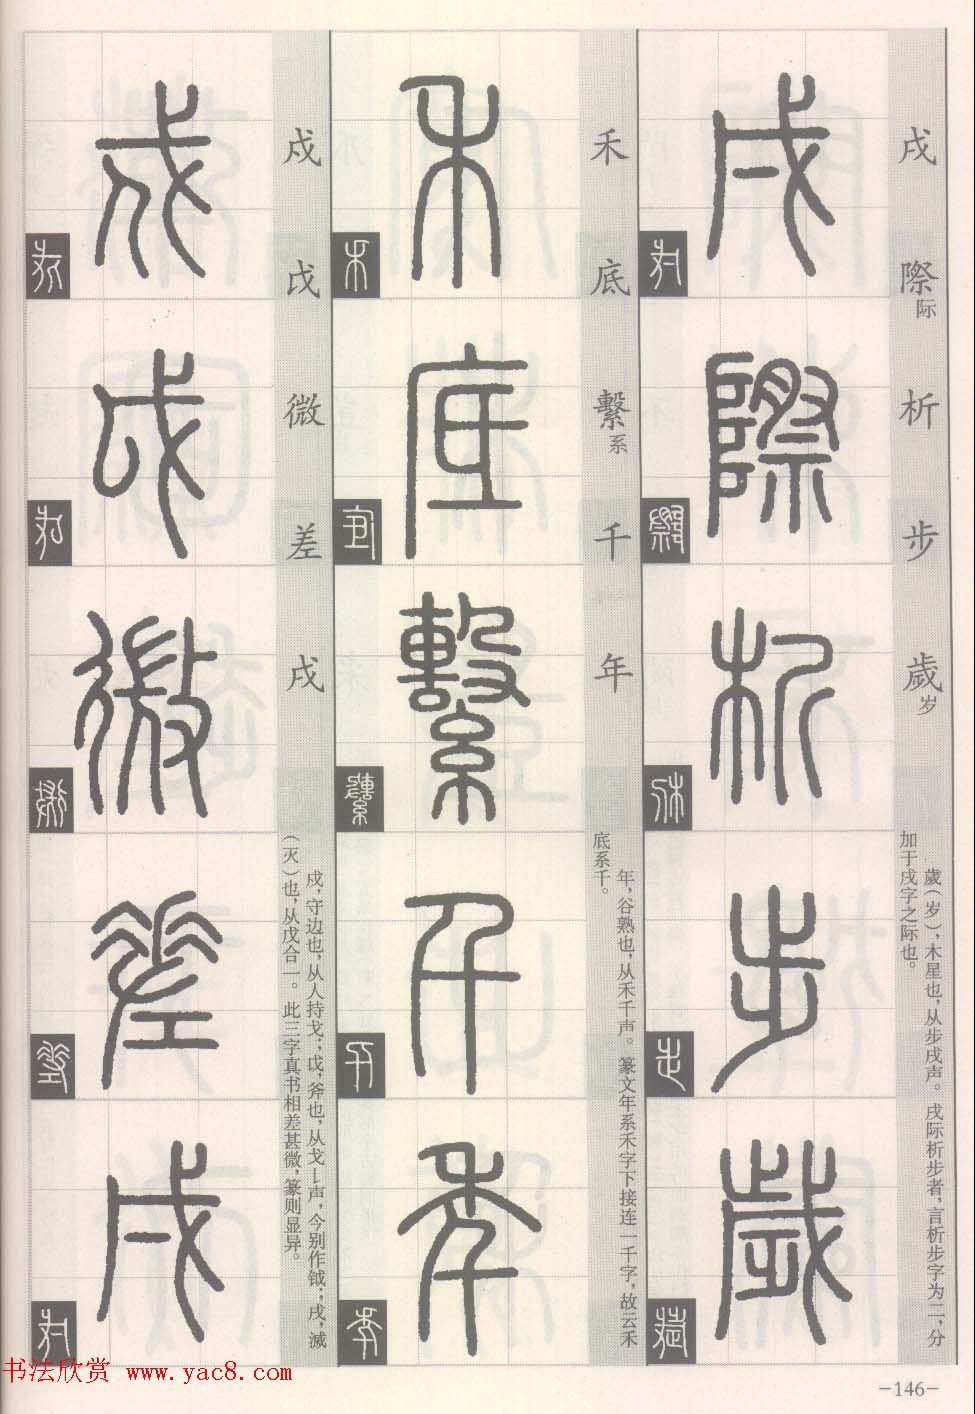 戌際际析步歲岁
歲（岁），木星也，从步戌声。戌际析步者，言析步字为二，分
加于戌字之际也。
禾底繫系千年
年，谷熟也，从禾千声。篆文年系禾字下接连一千字，故云禾
底系千。
戍戉微差戌
戍，守边也，从人持戈；戉，斧也，从戈𠄌声，今别作钺；戌，滅
（灭）也，从戊合一。此三字真书相差甚微，篆则显异。
书法欣赏 www.yac8.com
-146-